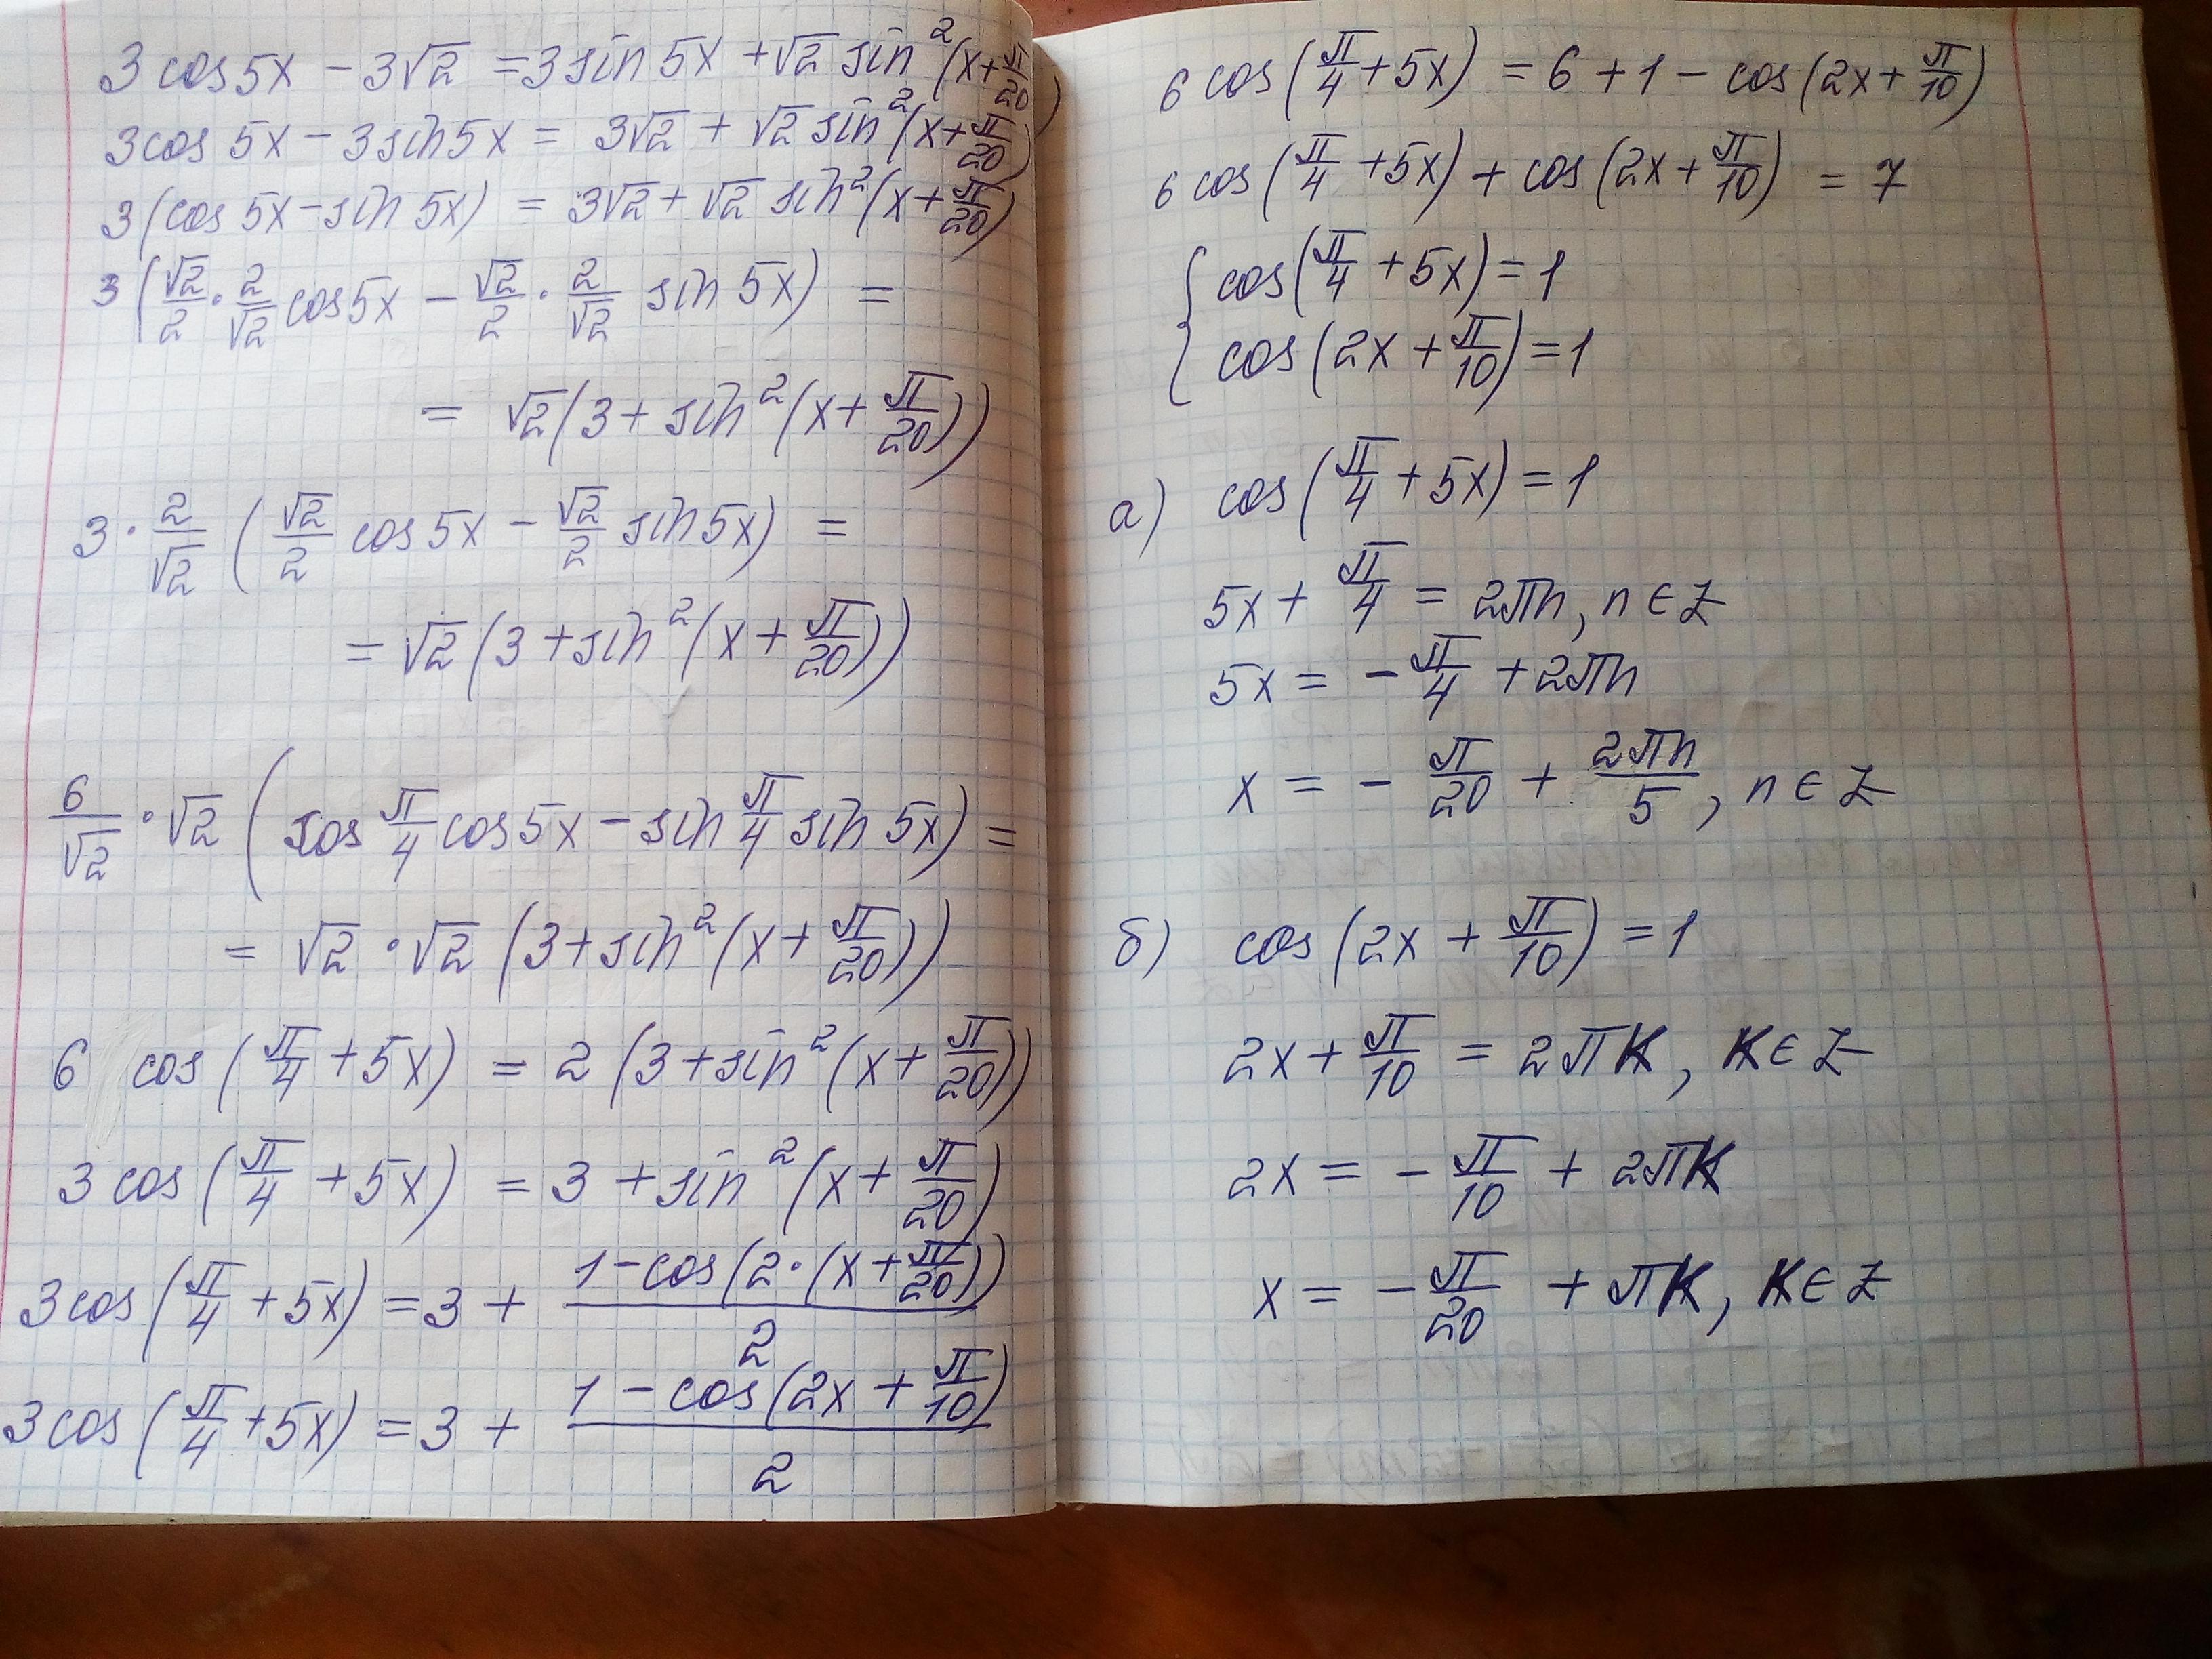 3 cos 5x − 3√2 = 3 sin 5x + √2 sin²(x + π/20)
3 cos 5x − 3 sin 5x = 3√2 + √2 sin²(x + π/20)
3(cos 5x − sin 5x) = 3√2 + √2 sin²(x + π/20)
3(√2/2 · 2/√2 cos 5x − √2/2 · 2/√2 sin 5x) =
= √2(3 + sin²(x + π/20))
3 · 2/√2 (√2/2 cos 5x − √2/2 sin 5x) =
= √2(3 + sin²(x + π/20))
6/√2 · √2 (cos π/4 cos 5x − sin π/4 sin 5x) =
= √2 · √2 (3 + sin²(x + π/20))
6 cos(π/4 + 5x) = 2(3 + sin²(x + π/20))
3 cos(π/4 + 5x) = 3 + sin²(x + π/20)
3 cos(π/4 + 5x) = 3 + (1 − cos(2 · (x + π/20)))/2
3 cos(π/4 + 5x) = 3 + (1 − cos(2x + π/10))/2
6 cos(π/4 + 5x) = 6 + 1 − cos(2x + π/10)
6 cos(π/4 + 5x) + cos(2x + π/10) = 7
{ cos(π/4 + 5x) = 1
cos(2x + π/10) = 1
а) cos(π/4 + 5x) = 1
5x + π/4 = 2πn, n ∈ Z
5x = − π/4 + 2πn
x = − π/20 + 2πn/5, n ∈ Z
б) cos(2x + π/10) = 1
2x + π/10 = 2πk, k ∈ Z
2x = − π/10 + 2πk
x = − π/20 + πk, k ∈ Z